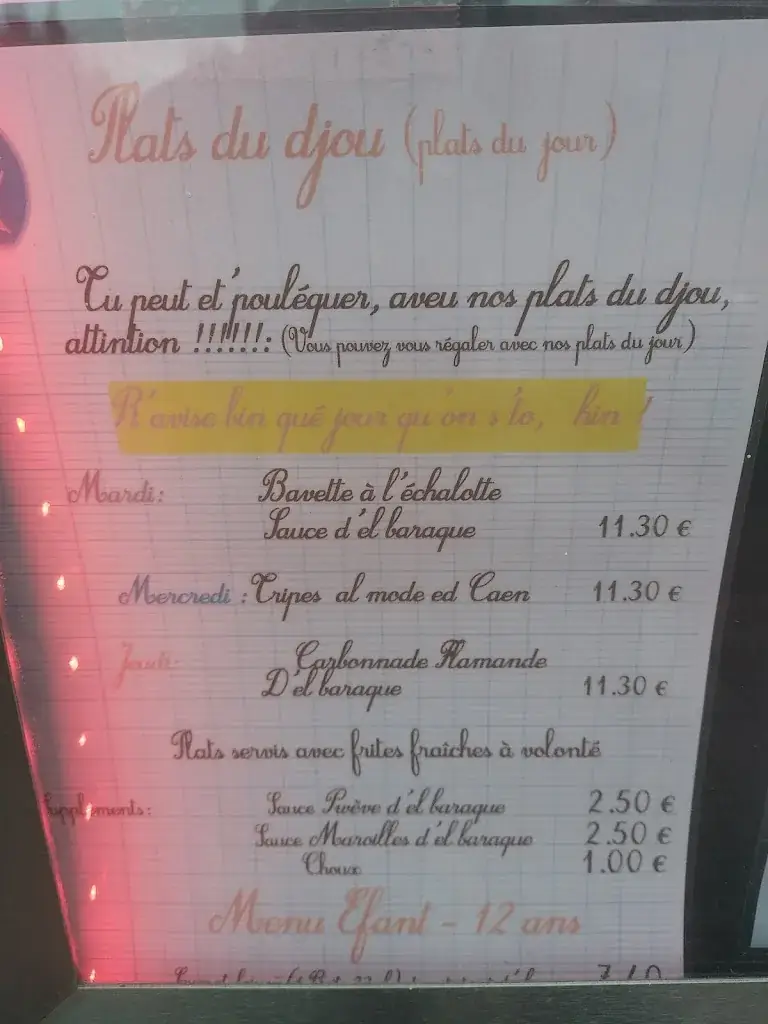 Plats du djou (plats du jour)
Tu peut et'pouléquer, aveu nos plats du djou,
attintion !!!!!!!: (Vous pouvez vous régaler avec nos plats du jour)
R'avise bin qué jour qu'on s'to, hin !
Mardi: Bavette à l'échalotte
Sauce d'el baraque 11.30 €
Mercredi : Tripes al mode ed Caen 11.30 €
Jeudi: Carbonnade Flamande
D'el baraque 11.30 €
Plats servis avec frites fraîches à volonté
Suppléments: Sauce Poève d'el baraque 2.50 €
Sauce Maroilles d'el baraque 2.50 €
Choux 1.00 €
Menu Éfant - 12 ans